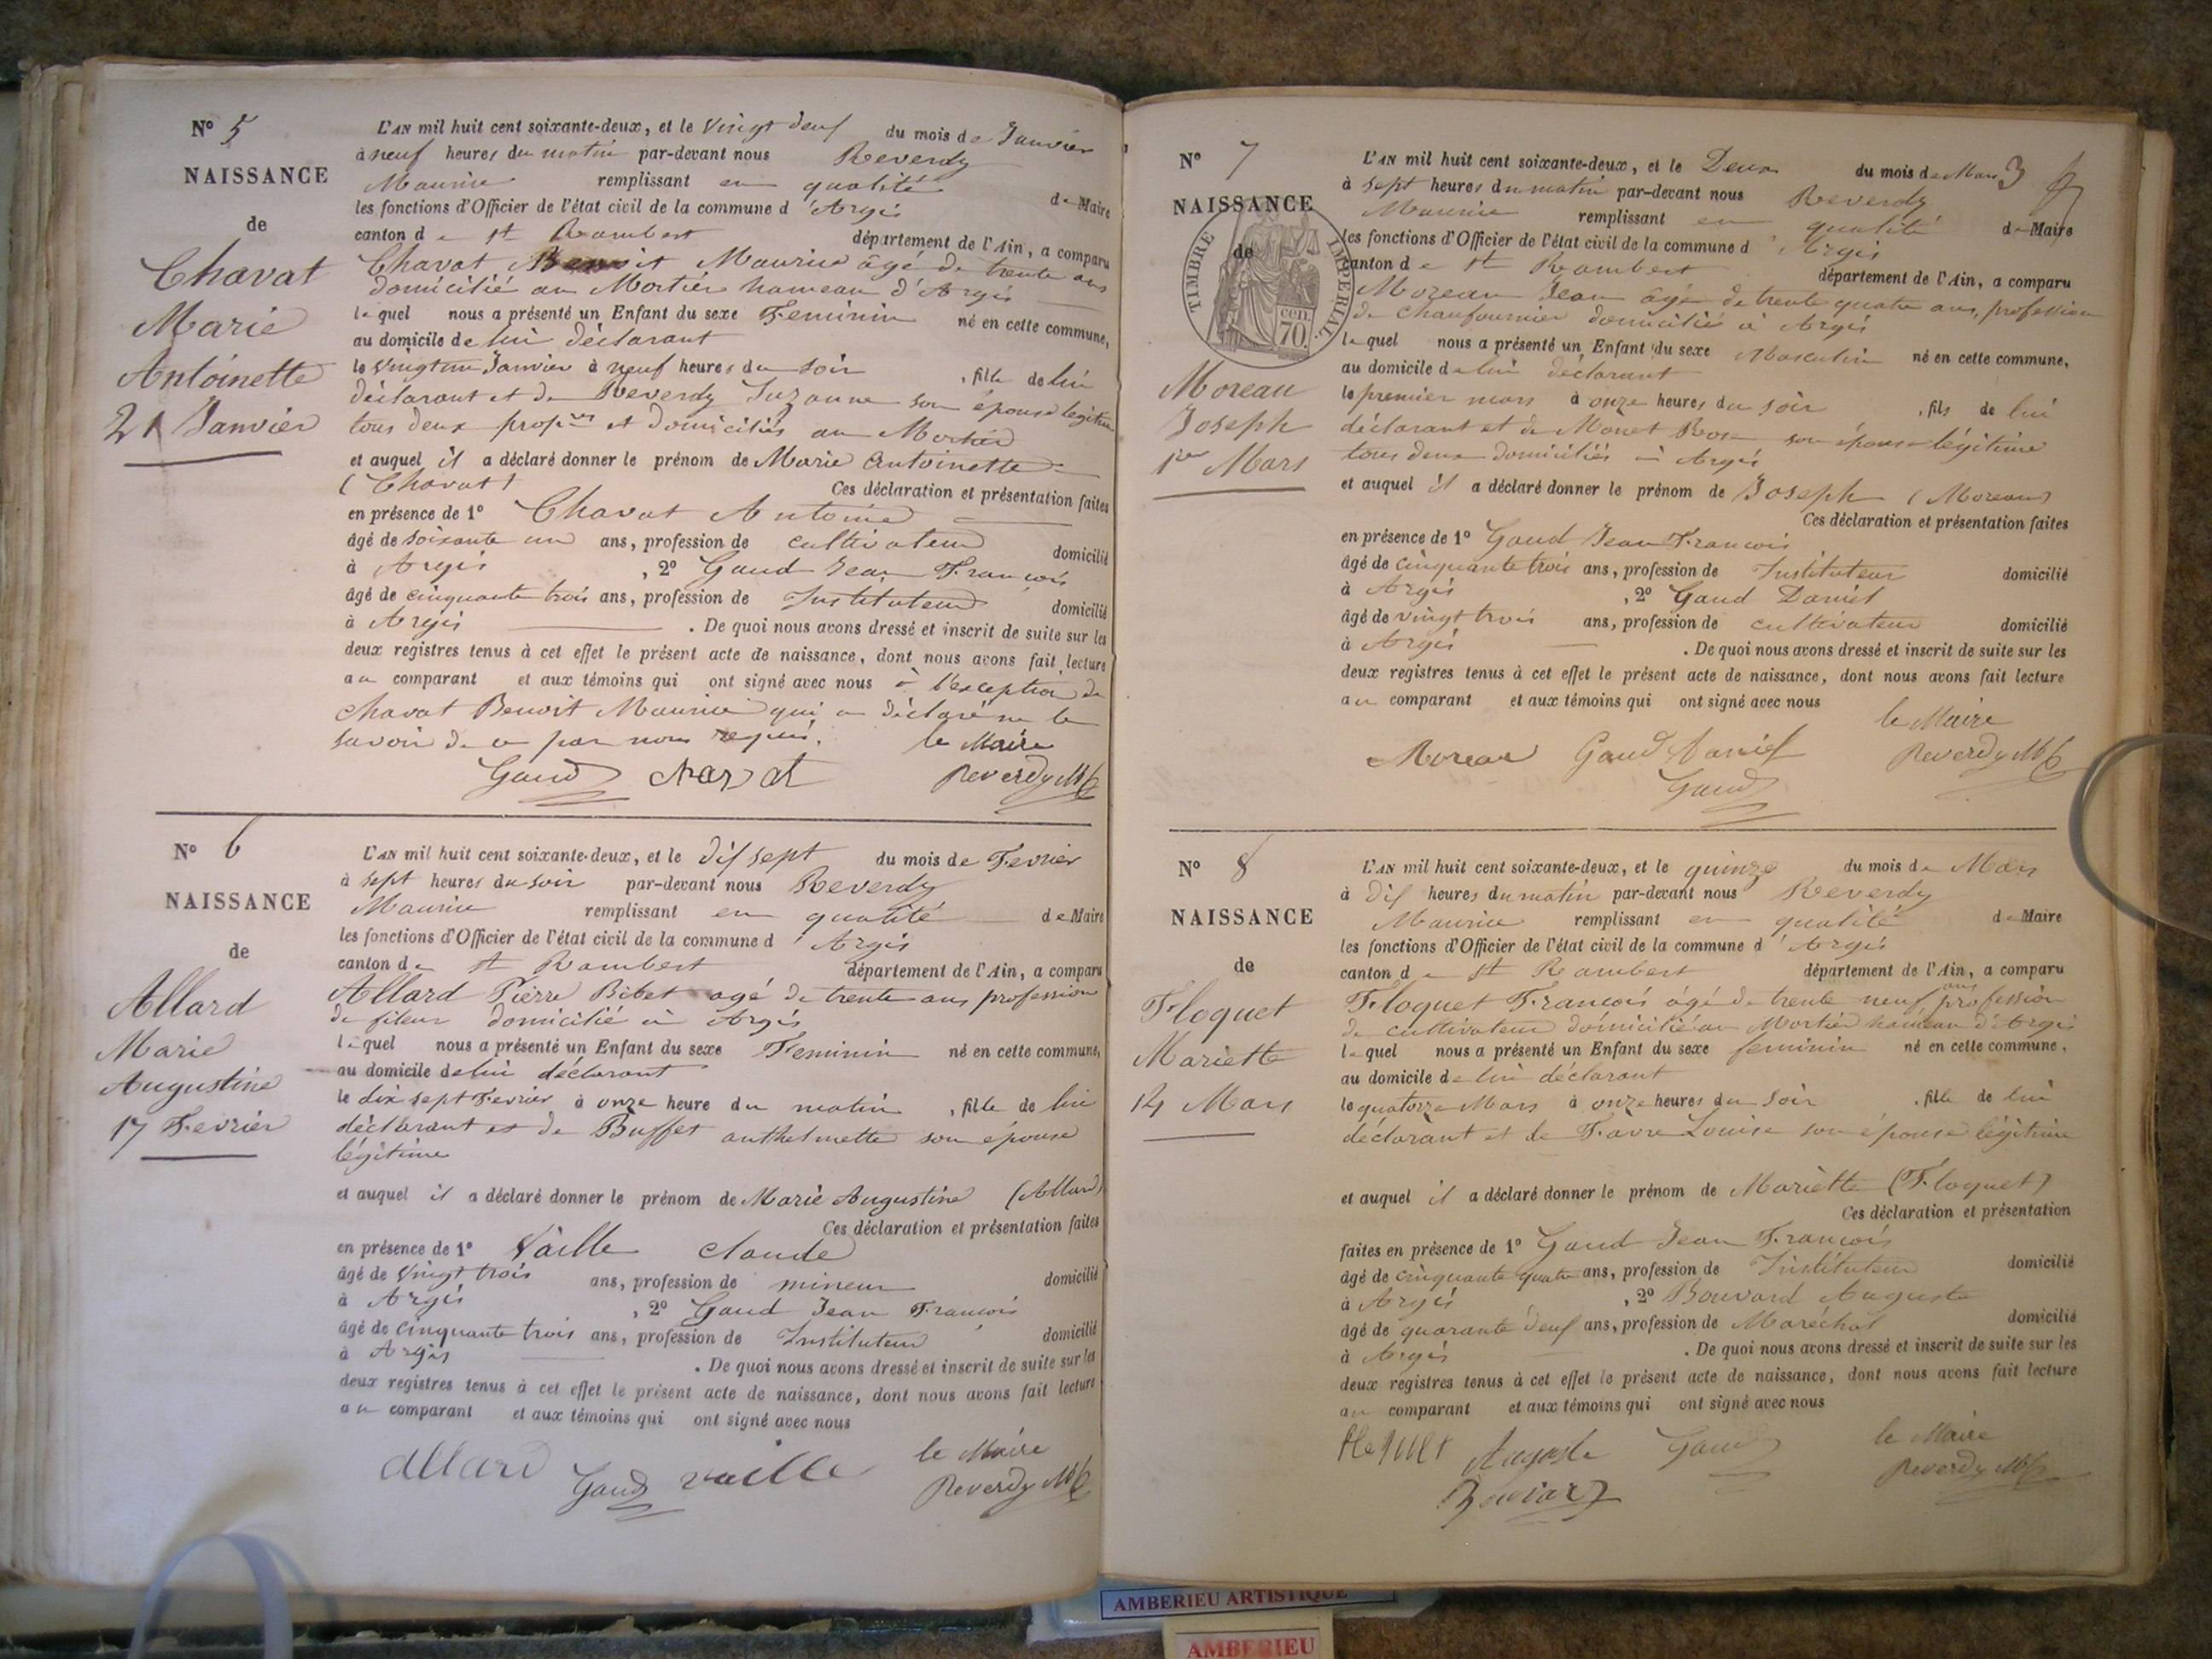 N° 5
NAISSANCE
de
Chavat
Marie
Antoinette
21 Janvier
L'AN mil huit cent soixante-deux, et le Vingt deux du mois de Janvier
à neuf heures du matin par-devant nous Reverdy
Maurice remplissant en qualité de Maire
les fonctions d'Officier de l'état civil de la commune d'Argis
canton de St Rambert département de l'Ain, a comparu
Chavat Benoit Maurice âgé de trente ans
domicilié au Mortier hameau d'Argis
lequel nous a présenté un Enfant du sexe Feminin né en cette commune,
au domicile de lui déclarant
le vingt un Janvier à neuf heures du soir, fille de lui
déclarant et de Reverdy Suzanne son épouse légitime
tous deux propres et domiciliés au Mortier
et auquel il a déclaré donner le prénom de Marie Antoinette
(Chavat) Ces déclaration et présentation faites
en présence de 1° Chavat Antoine
âgé de soixante un ans, profession de cultivateur domicilié
à Argis, 2° Gaud Jean François
âgé de cinquante trois ans, profession de Instituteur domicilié
à Argis. De quoi nous avons dressé et inscrit de suite sur les
deux registres tenus à cet effet le présent acte de naissance, dont nous avons fait lecture
au comparant et aux témoins qui ont signé avec nous à l'exception de
Chavat Benoit Maurice qui a déclaré ne le
savoir de ce par nous requis. le Maire
Gaud Chavat Reverdy
N° 6
NAISSANCE
de
Allard
Marie
Augustine
17 Fevrier
L'AN mil huit cent soixante-deux, et le dix sept du mois de Fevrier
à sept heures du soir par-devant nous Reverdy
Maurice remplissant en qualité de Maire
les fonctions d'Officier de l'état civil de la commune d'Argis
canton de St Rambert département de l'Ain, a comparu
Allard Pierre Bibet agé de trente ans profession
de fileur domicilié à Argis
lequel nous a présenté un Enfant du sexe Feminin né en cette commune,
au domicile de lui déclarant
le dix sept Fevrier à onze heure du matin, fille de lui
déclarant et de Buffet anthelmette son épouse
légitime
et auquel il a déclaré donner le prénom de Marie Augustine (Allard)
Ces déclaration et présentation faites
en présence de 1° Vaille Claude
âgé de Vingt trois ans, profession de mineur domicilié
à Argis, 2° Gaud Jean François
âgé de cinquante trois ans, profession de Instituteur domicilié
à Argis. De quoi nous avons dressé et inscrit de suite sur les
deux registres tenus à cet effet le présent acte de naissance, dont nous avons fait lecture
au comparant et aux témoins qui ont signé avec nous
le Maire
Allard Gaud Vaille Reverdy
3
N° 7
NAISSANCE
de
TIMBRE IMPERIAL
70 cen.
Moreau
Joseph
1er Mars
L'AN mil huit cent soixante-deux, et le Deux du mois de Mars
à sept heures du matin par-devant nous Reverdy
Maurice remplissant en qualité de Maire
les fonctions d'Officier de l'état civil de la commune d'Argis
canton de St Rambert département de l'Ain, a comparu
Moreau Jean âgé de trente quatre ans, profession
de chaufournier domicilié à Argis
lequel nous a présenté un Enfant du sexe Masculin né en cette commune,
au domicile de lui déclarant
le premier mars à onze heures du soir, fils de lui
déclarant et de Monet Rose son épouse légitime
tous deux domiciliés à Argis
et auquel il a déclaré donner le prénom de Joseph (Moreau)
Ces déclaration et présentation faites
en présence de 1° Gaud Jean François
âgé de cinquante trois ans, profession de Instituteur domicilié
à Argis, 2° Gaud Daniel
âgé de vingt trois ans, profession de cultivateur domicilié
à Argis. De quoi nous avons dressé et inscrit de suite sur les
deux registres tenus à cet effet le présent acte de naissance, dont nous avons fait lecture
au comparant et aux témoins qui ont signé avec nous
le Maire
Moreau Gaud Daniel Reverdy
Gaud
N° 8
NAISSANCE
de
Floquet
Mariette
14 Mars
L'AN mil huit cent soixante-deux, et le quinze du mois de Mars
à dix heures du matin par-devant nous Reverdy
Maurice remplissant en qualité de Maire
les fonctions d'Officier de l'état civil de la commune d'Argis
canton de St Rambert département de l'Ain, a comparu
Floquet François âgé de trente neuf ans profession
de cultivateur domicilié au Mortier hameau d'Argis
lequel nous a présenté un Enfant du sexe feminin né en cette commune,
au domicile de lui déclarant
le quatorze Mars à onze heures du soir, fille de lui
déclarant et de Favre Louise son épouse légitime
et auquel il a déclaré donner le prénom de Mariette (Floquet)
Ces déclaration et présentation
faites en présence de 1° Gaud Jean François
âgé de cinquante quatre ans, profession de Instituteur domicilié
à Argis, 2° Bouvard Auguste
âgé de quarante deux ans, profession de Maréchal domicilié
à Argis. De quoi nous avons dressé et inscrit de suite sur les
deux registres tenus à cet effet le présent acte de naissance, dont nous avons fait lecture
au comparant et aux témoins qui ont signé avec nous
le Maire
Auguste Gaud Reverdy
AMBERIEU ARTISTIQUE
AMBERIEU